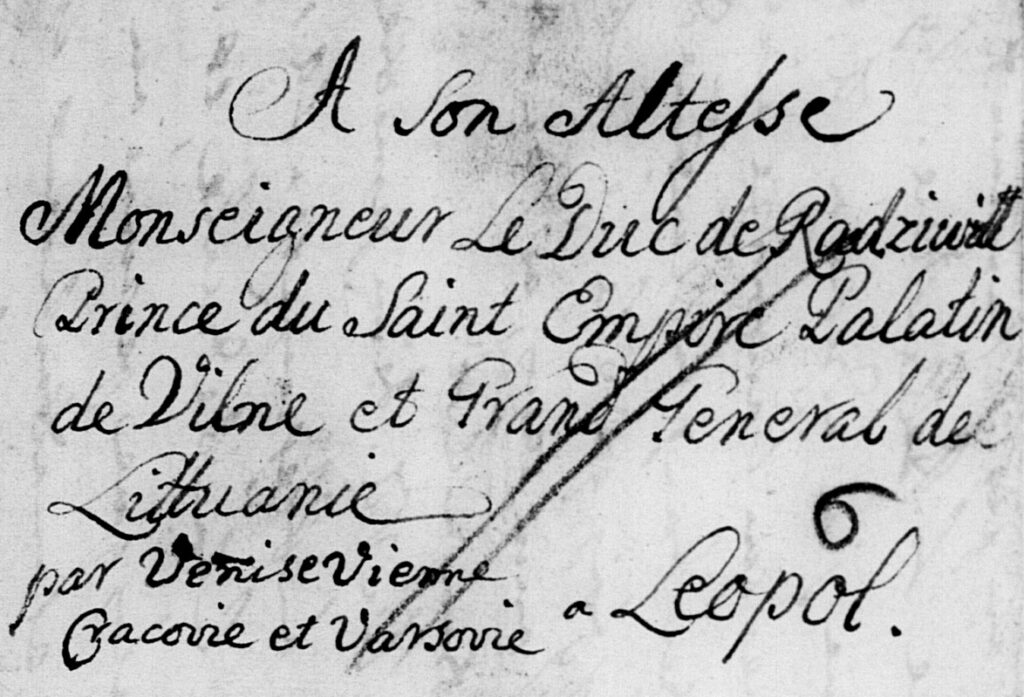 A Son Altesse
Monseigneur Le Duc de Radziwill
Prince du Saint Empire Palatin
de Vilne et Grand General de
Littuanie
6
par Venise Vienne
a Leopol.
Cracovie et Varsovie